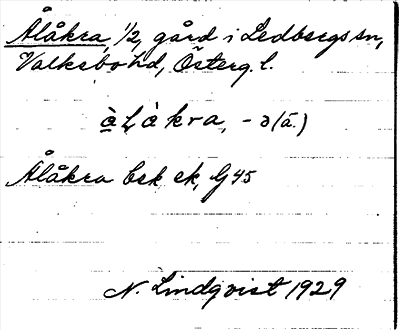 Ålåkra, 1/2, gård i Ledbergs sn,
Valkebo hd, Österg. l.
àLàkra, -ə (ä.)
Ålåkra bsk ek, G 45
N. Lindqvist 1929